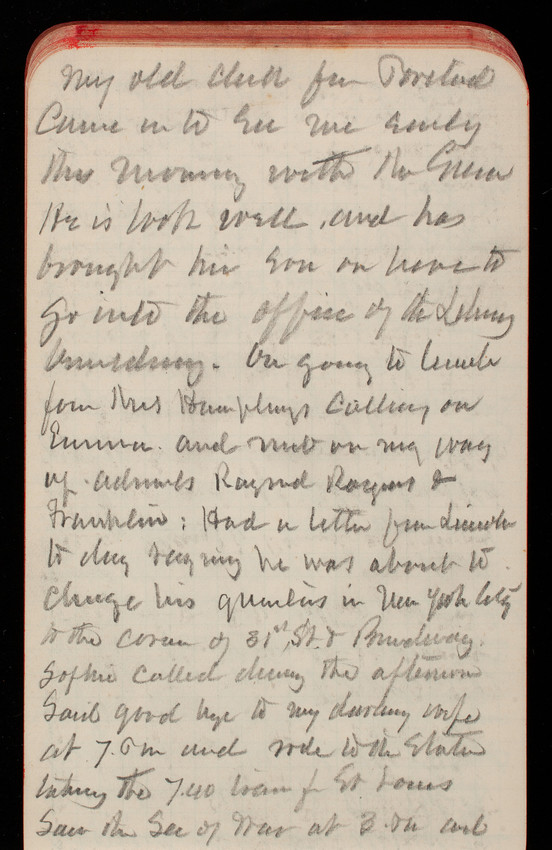 My old clerk from Portland
Came in to see me early
this morning with
He is look well, and has
brought his son on here to
go into the office of the Library
building. On going to lunch
found Mrs Humphreys calling on
Emma. and met on my way
up Admirals Raymd Rodgers &
Franklin: Had a letter from Lincoln
to day saying he was about to
change his quarters in New York City
to the corner of 31st St. & Broadway.
Sophie called during the afternoon
Said good bye to my darling wife
at 7. Pm and rode to the Station
taking the 7.40 train for St Louis
Saw the Sec of War at 3. Pm and